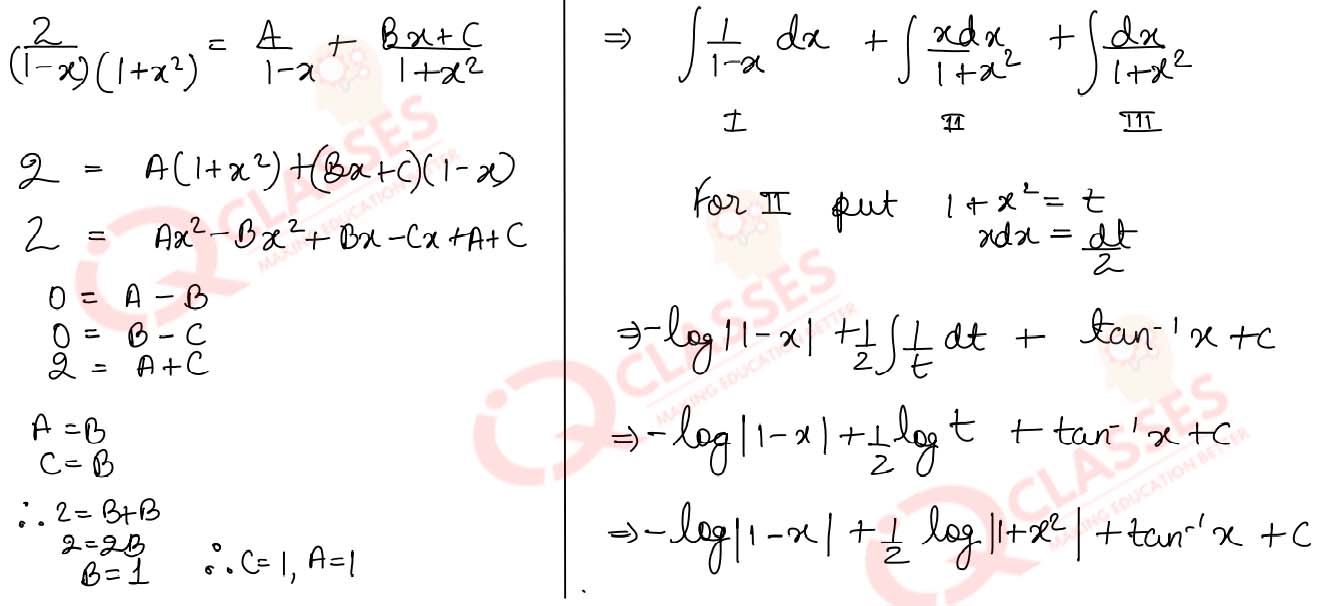 2/((1-x)(1+x²)) = A/(1-x) + (Bx+C)/(1+x²)
2 = A(1+x²)+(Bx+C)(1-x)
2 = Ax²-Bx²+Bx-Cx+A+C
0 = A-B
0 = B-C
2 = A+C
A=B
C=B
∴ 2=B+B
2=2B
B=1 ∴ C=1, A=1
⇒ ∫ 1/(1-x) dx + ∫ xdx/(1+x²) + ∫ dx/(1+x²)
I II III
For II put 1+x²=t
xdx = dt/2
⇒ -log|1-x| + 1/2 ∫ 1/t dt + tan⁻¹x + C
⇒ -log|1-x| + 1/2 log t + tan⁻¹x + C
⇒ -log|1-x| + 1/2 log|1+x²| + tan⁻¹x + C
IQ CLASSES
MAKING EDUCATION BETTER
IQ CLASSES
MAKING EDUCATION BETTER
IQ CLASSES
MAKING EDUCATION BETTER